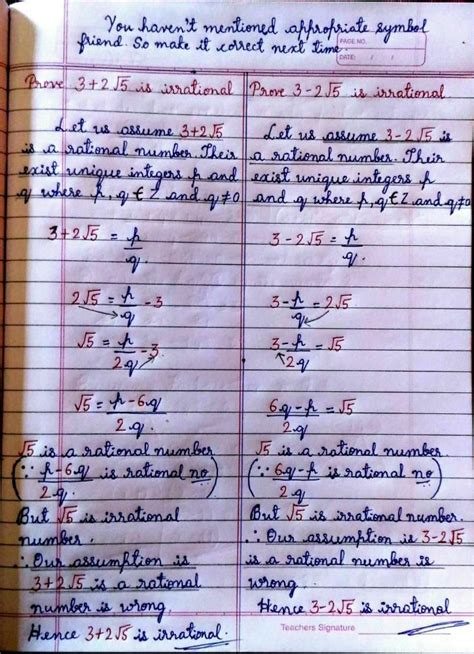 You haven't mentioned appropriate symbol
friend. So make it correct next time.
PAGE NO.
DATE: / /
Prove 3+2√5 is irrational
Let us assume 3+2√5
is a rational number. Their
exist unique integers p and
q where p, q ∈ Z and q≠0
3+2√5 = p/q.
2√5 = p/q - 3
√5 = p/2q - 3
√5 = p-6q/2q.
√5 is a rational number
(∵ p-6q/2q. is rational no)
But √5 is irrational
number.
∴ Our assumption is
3+2√5 is a rational
number is wrong.
Hence 3+2√5 is irrational.
Prove 3-2√5 is irrational
Let us assume 3-2√5 is
a rational number. Their
exist unique integers p
and q where p, q ∈ Z and q≠0
3-2√5 = p/q.
3-p/q = 2√5
3-p/2q = √5
6q-p/2q. = √5
√5 is a rational number.
(∵ 6q-p/2q. is rational no)
But √5 is irrational number.
∴ Our assumption is 3-2√5
is a rational number is
wrong.
Hence 3-2√5 is irrational
Teachers Signature